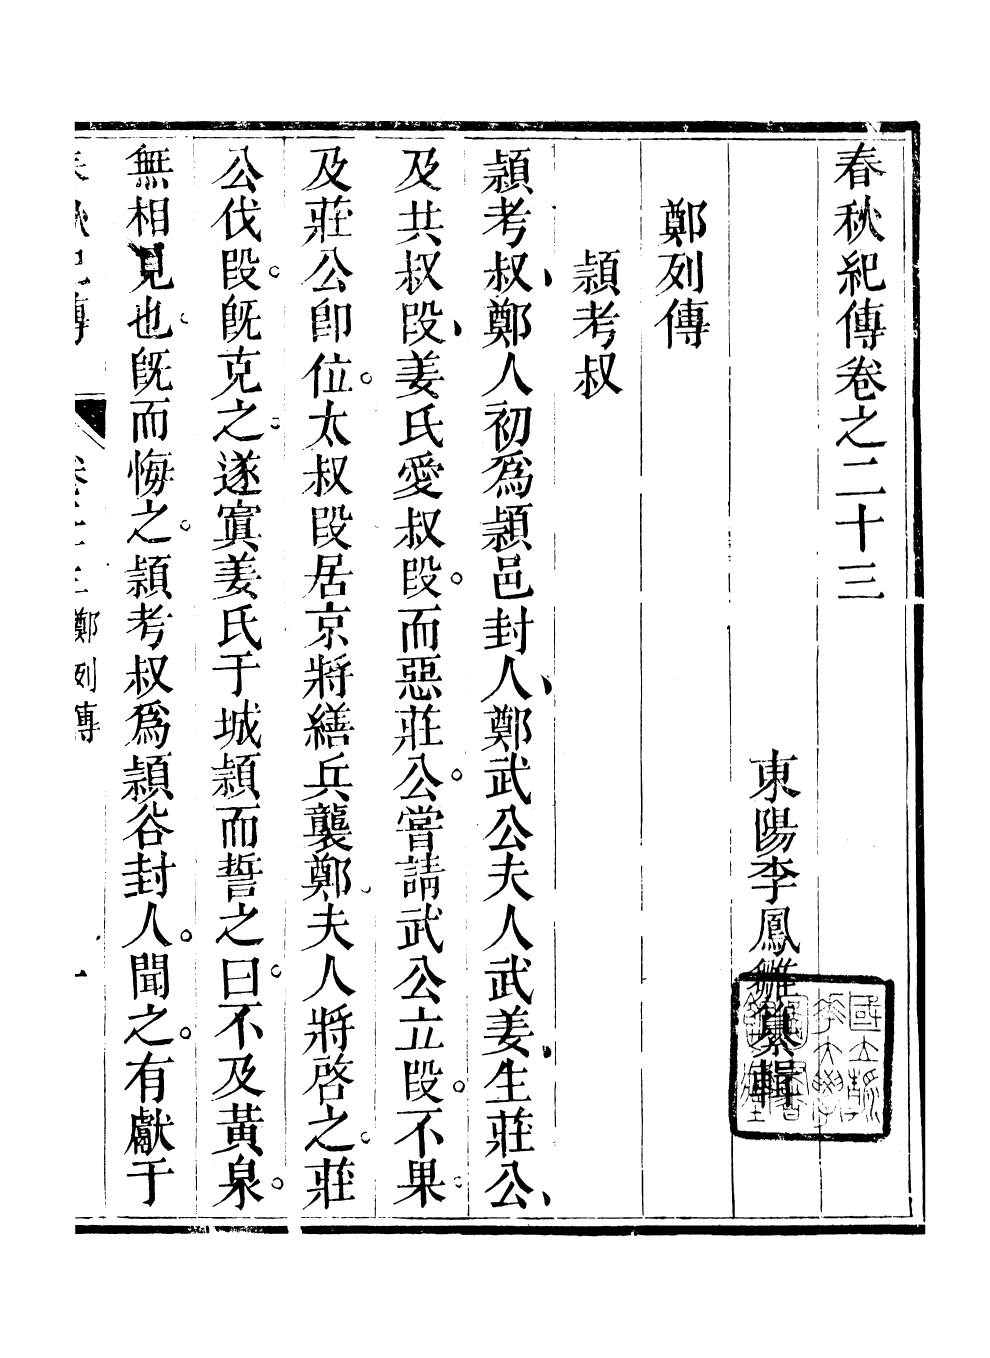 春秋紀傳卷之二十三
東陽李鳳雛纂輯
鄭列傳
潁考叔
潁考叔、鄭人初爲潁邑封人、鄭武公夫人武姜、生莊公、
及共叔段、姜氏愛叔段。而惡莊公。嘗請武公立段。不果。
及莊公卽位。太叔段居京將繕兵襲鄭。夫人將啓之。莊
公伐段。旣克之。遂寘姜氏于城潁而誓之。曰不及黃泉。
無相見也。旣而悔之。潁考叔爲潁谷封人。聞之。有獻于
春秋紀傳
卷之二十三鄭列傳
一
國立清華大學圖書館